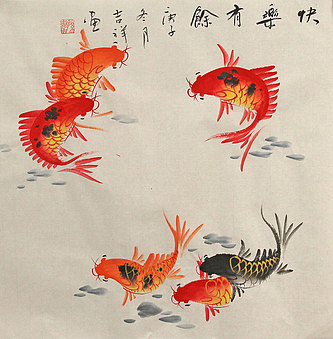 快樂有餘
庚子
冬月
吉祥
畫